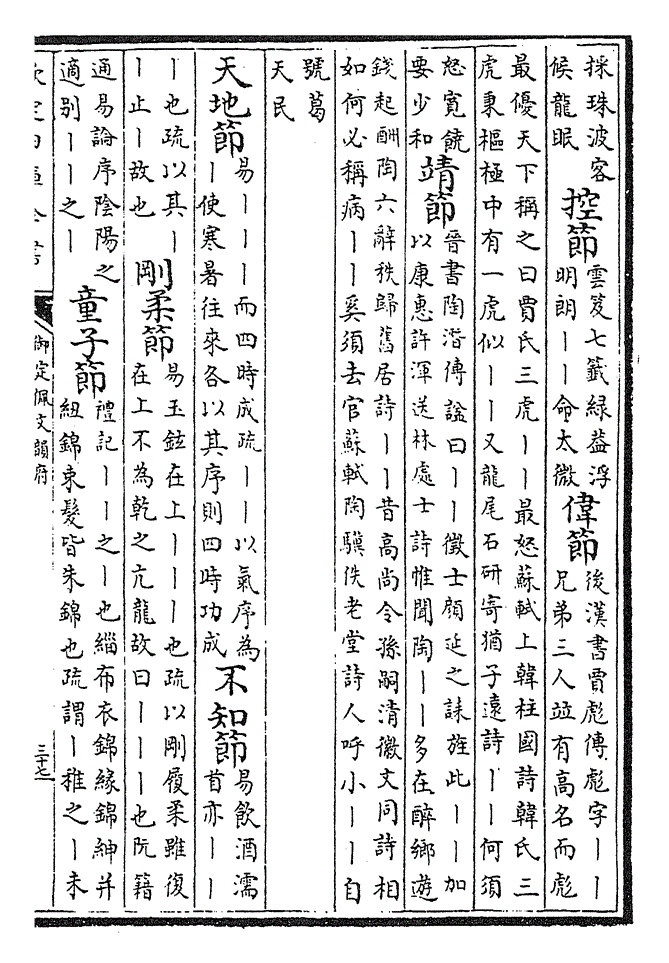 採珠波客
候龍眠
控節
雲笈七籤緑葢浮
明朗丨丨命太微
偉節
後漢書賈彪傳彪字丨丨
兄弟三人竝有高名而彪
最優天下稱之曰賈氏三虎丨丨最怒蘇軾上韓柱國詩韓氏三
虎秉樞極中有一虎似丨丨又龍尾石研寄猶子遠詩丨丨何須
怒寛饒
要少和
靖節
晉書陶潛傳諡曰丨丨徵士顔延之誄旌此丨丨加
以康惠許渾送林處士詩惟聞陶丨丨多在醉鄉遊
錢起酬陶六辭秩歸舊居詩丨丨昔高尚令孫嗣清徽文同詩相
如何必稱病丨丨奚須去官蘇軾陶驥佚老堂詩人呼小丨丨自
號葛
天民
天地節
易丨丨丨而四時成疏丨丨以氣序為
丨使寒暑往來各以其序則四時功成
不知節
易飲酒濡
首亦丨丨
丨也疏以其丨
丨止丨故也
剛柔節
易玉鉉在上丨丨丨也疏以剛履柔雖復
在上不為乾之亢龍故曰丨丨丨也阮籍
通易論序陰陽之
適别丨丨之丨
童子節
禮記丨丨之丨也緇布衣錦緣錦紳并
紐錦束髮皆朱錦也疏謂丨稚之丨未
欽定四庫全書
御定佩文韻府
三十七